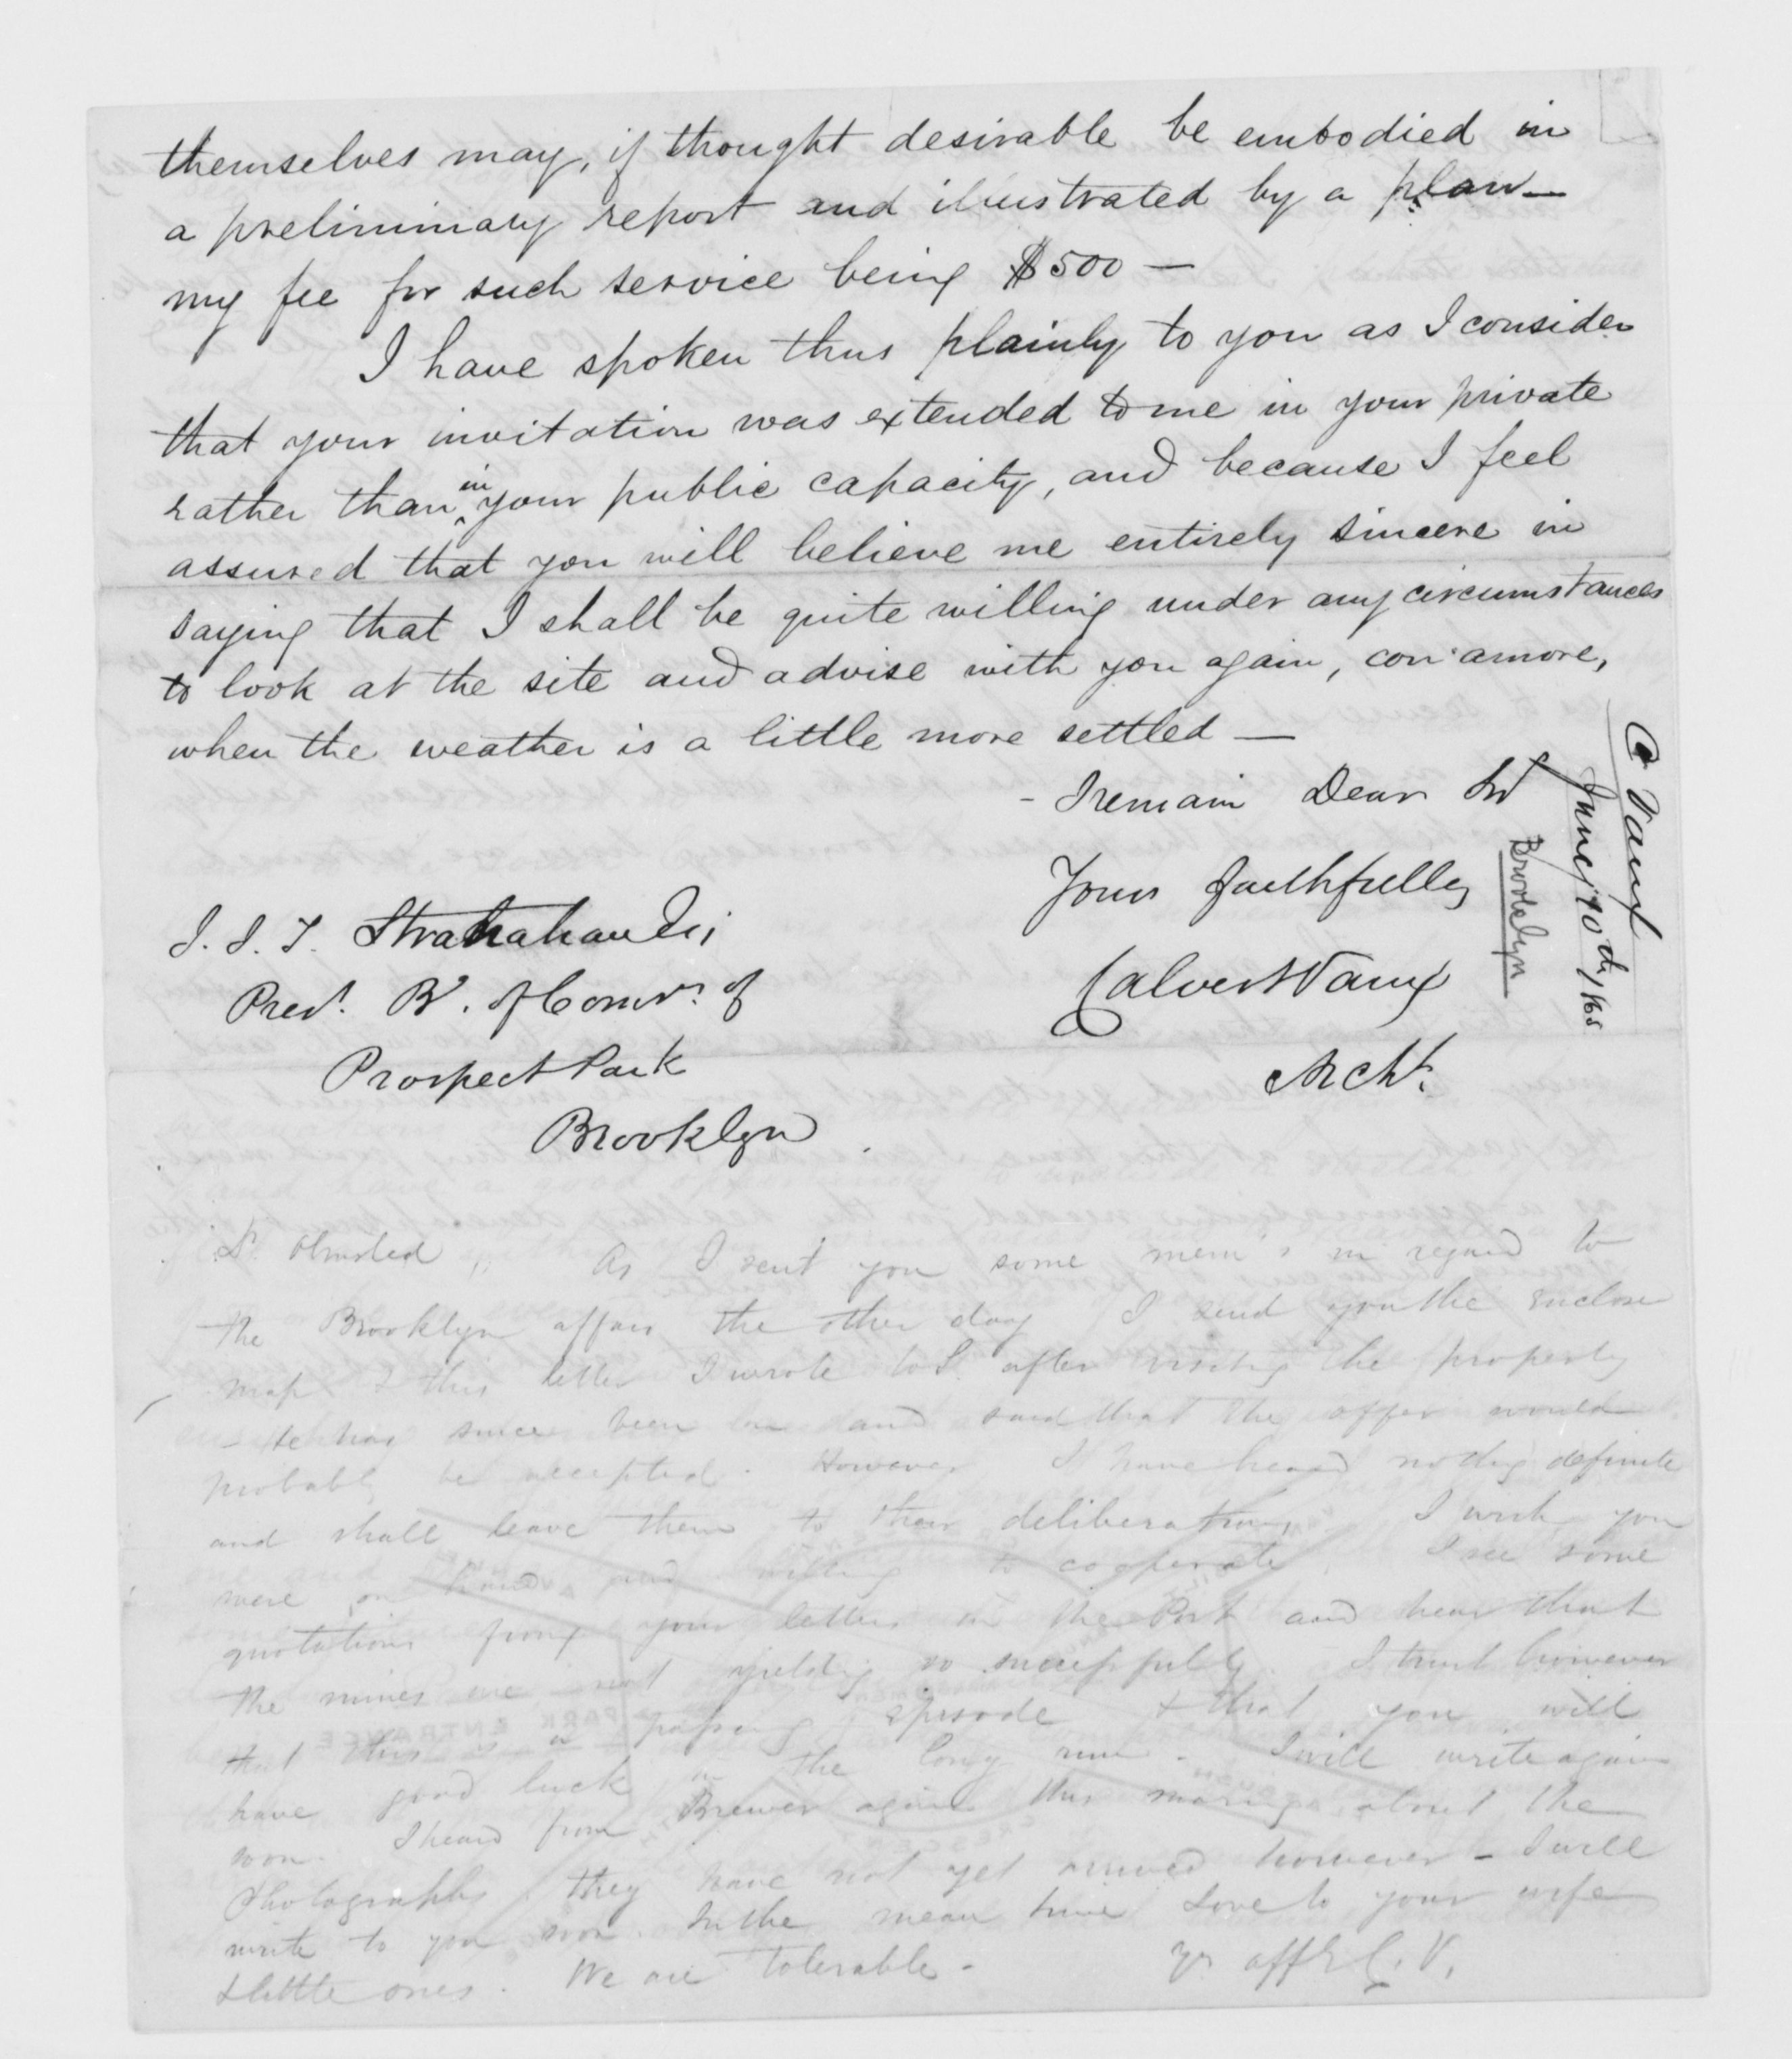 themselves may, if thought desirable be embodied in
a preliminary report and illustrated by a plan—
my fee for such service being $500 —
I have spoken thus plainly to you as I consider
that your invitation was extended to me in your private
rather than in your public capacity, and because I feel
assured that you will believe me entirely sincere in
saying that I shall be quite willing under any circumstances
to look at the site and advise with you again, con amore,
when the weather is a little more settled —
- I remain Dear Sir
Yours faithfully
Calvert Vaux
Archt.
J. S. T. Stranahan
Prest. Bd. of Comrs. of
Prospect Park
Brooklyn
C Vaux
June 10th / 65
Brooklyn
Olmsted, As I sent you some mem's in regard to
the Brooklyn affair the other day I send you the enclose
map & this letter I wrote to S. after visiting the property
- He has since been in and said that the offer would
probably be accepted. However I have heard nothing definite
and shall leave them to their deliberations. I wish you
were on hand and willing to cooperate. I see some
quotations from your letters in the Post and hear that
the mines are not yielding so successfully. I trust however
that this is a passing episode & that you will
have good luck in the long run - I will write again
soon. I heard from Brewer again this morning about the
Photographs they have not yet arrived however - I will
write to you soon. In the mean time Love to your wife
& little ones. We are tolerable -
Yr affte C. V.
PARK ENTRANCE